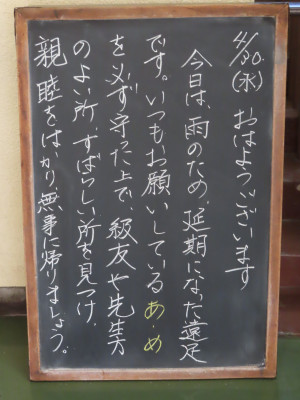 4/30(水) おはようございます
今日は、雨のため、延期になった遠足
です。いつもお願いしているあ・め
を必ず守った上で、級友や先生方
のよい所、すばらしい所を見つけ、
親睦をはかり、無事に帰りましょう。